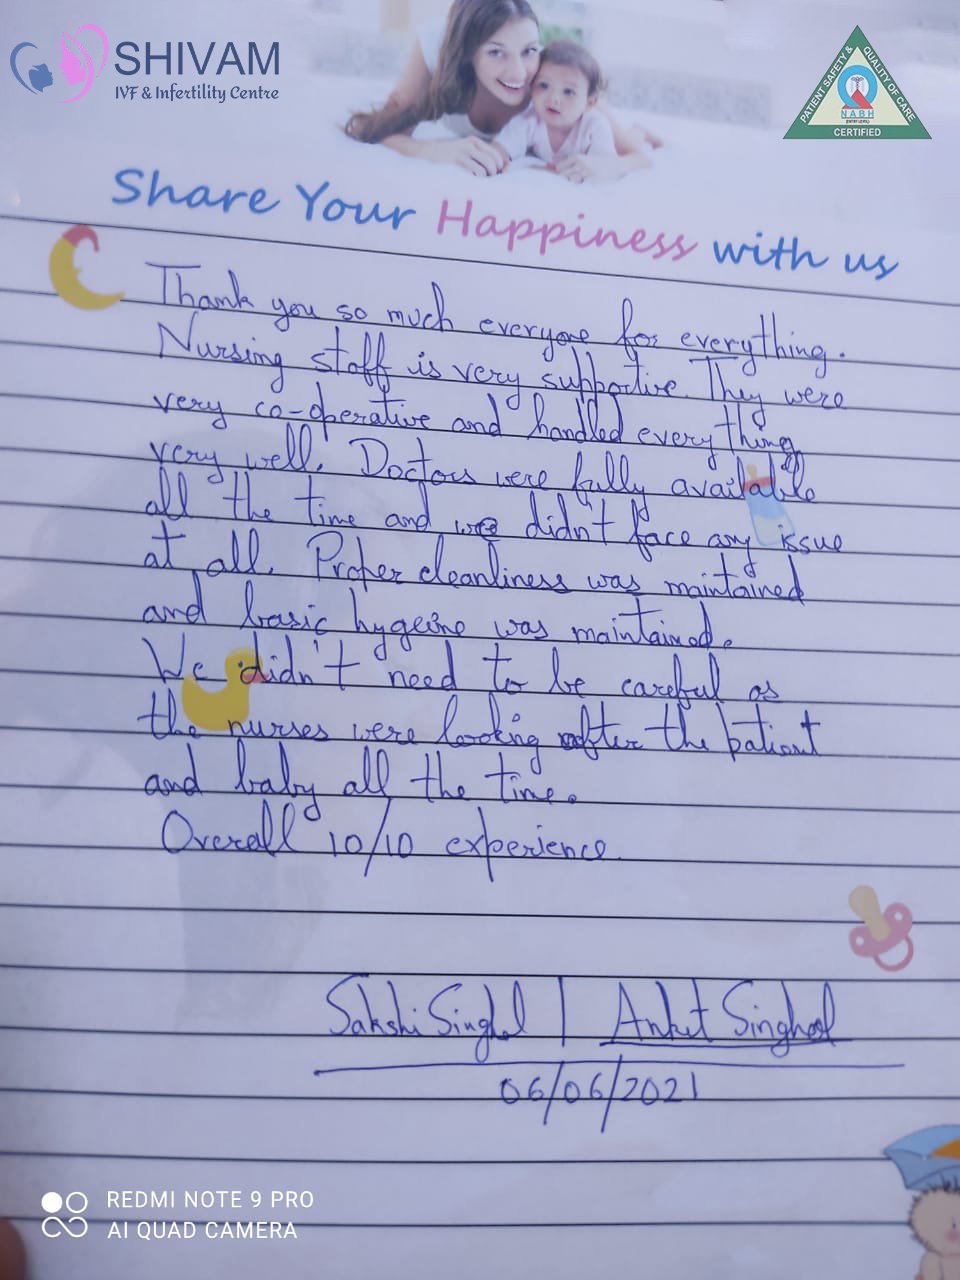 SHIVAM
IVF & Infertility Centre
PATIENT SAFETY & QUALITY OF CARE
NABH
CERTIFIED
Share Your Happiness with us
Thank you so much everyone for everything.
Nursing staff is very supportive. They were
very co-operative and handled everything
very well. Doctors were fully available
all the time and we didn't face any issue
at all. Proper cleanliness was maintained
and basic hygeine was maintained.
We didn't need to be careful as
the nurses were looking after the patient
and baby all the time.
Overall 10/10 experience.
Sakshi Singhal | Ankit Singhal
06/06/2021
REDMI NOTE 9 PRO
AI QUAD CAMERA